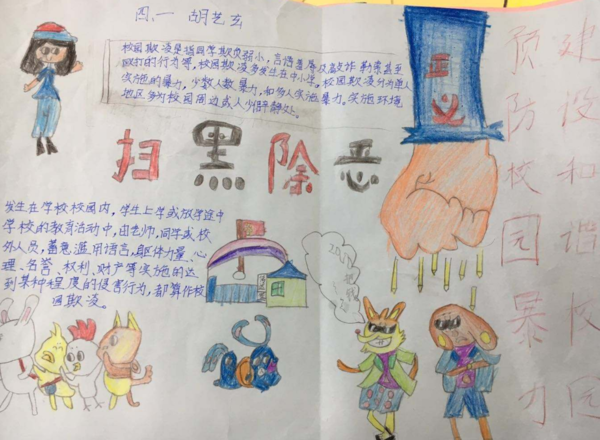 四、一 胡艺玄
校园欺凌是指同学欺负弱小，言语羞辱及敲诈勒索甚至
殴打的行为等，校园欺凌多发生在中小学。校园欺凌分为单人
实施的暴力，少数人数暴力，和多人实施暴力。实施环境
地区多为校园周边或人少僻静处。
扫黑除恶
发生在学校校园内，学生上学或放学途中
学校的教育活动中，由老师，同学或校
外人员，蓄意滥用语言、躯体力量、心
理、名誉、权利、财产等实施的达
到某种程度的侵害行为，都算作校
园欺凌。
正义
预防校园暴力
建设和谐校园